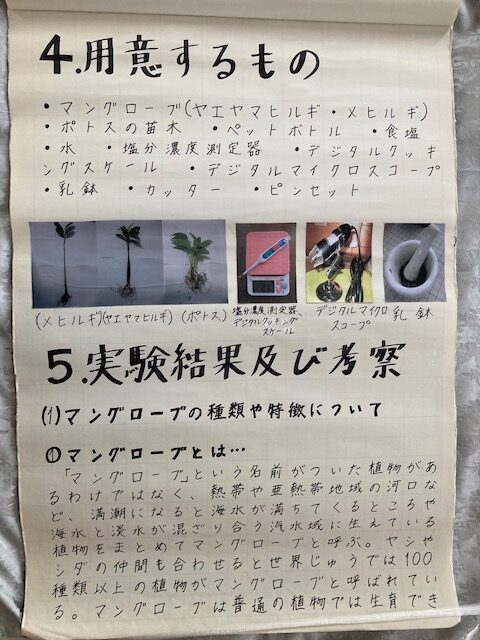 4.用意するもの
・マングローブ(ヤエヤマヒルギ・メヒルギ)
・ポトスの苗木 ・ペットボトル ・食塩
・水 ・塩分濃度測定器 ・デジタルクッキ
ングスケール ・デジタルマイクロスコープ
・乳鉢 ・カッター ・ピンセット
(メヒルギ)(ヤエヤマヒルギ) (ポトス)
塩分濃度測定器、
デジタルクッキング
スケール
デジタルマイクロ
スコープ
乳鉢
5.実験結果及び考察
(1)マングローブの種類や特徴について
①マングローブとは…
「マングローブ」という名前がついた植物があ
るわけではなく、熱帯や亜熱帯地域の河口な
ど、満潮になると海水が満ちてくるところや
海水と淡水が混ざり合う汽水域に生えている
植物をまとめてマングローブと呼ぶ。ヤシや
シダの仲間も合わせると世界じゅうでは100
種類以上の植物がマングローブと呼ばれてい
る。マングローブは普通の植物では生育でき